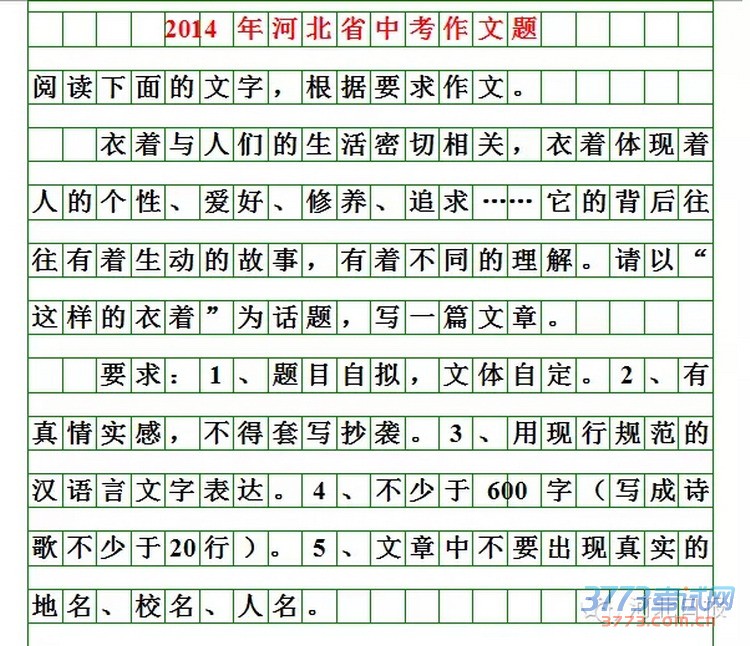 2014年河北省中考作文题
阅读下面的文字，根据要求作文。
衣着与人们的生活密切相关，衣着体现着
人的个性、爱好、修养、追求……它的背后往
往有着生动的故事，有着不同的理解。请以“
这样的衣着”为话题，写一篇文章。
要求：1、题目自拟，文体自定。2、有
真情实感，不得套写抄袭。3、用现行规范的
汉语言文字表达。4、不少于600字（写成诗
歌不少于20行）。5、文章中不要出现真实的
地名、校名、人名。
3773考试网
3773.com.cn